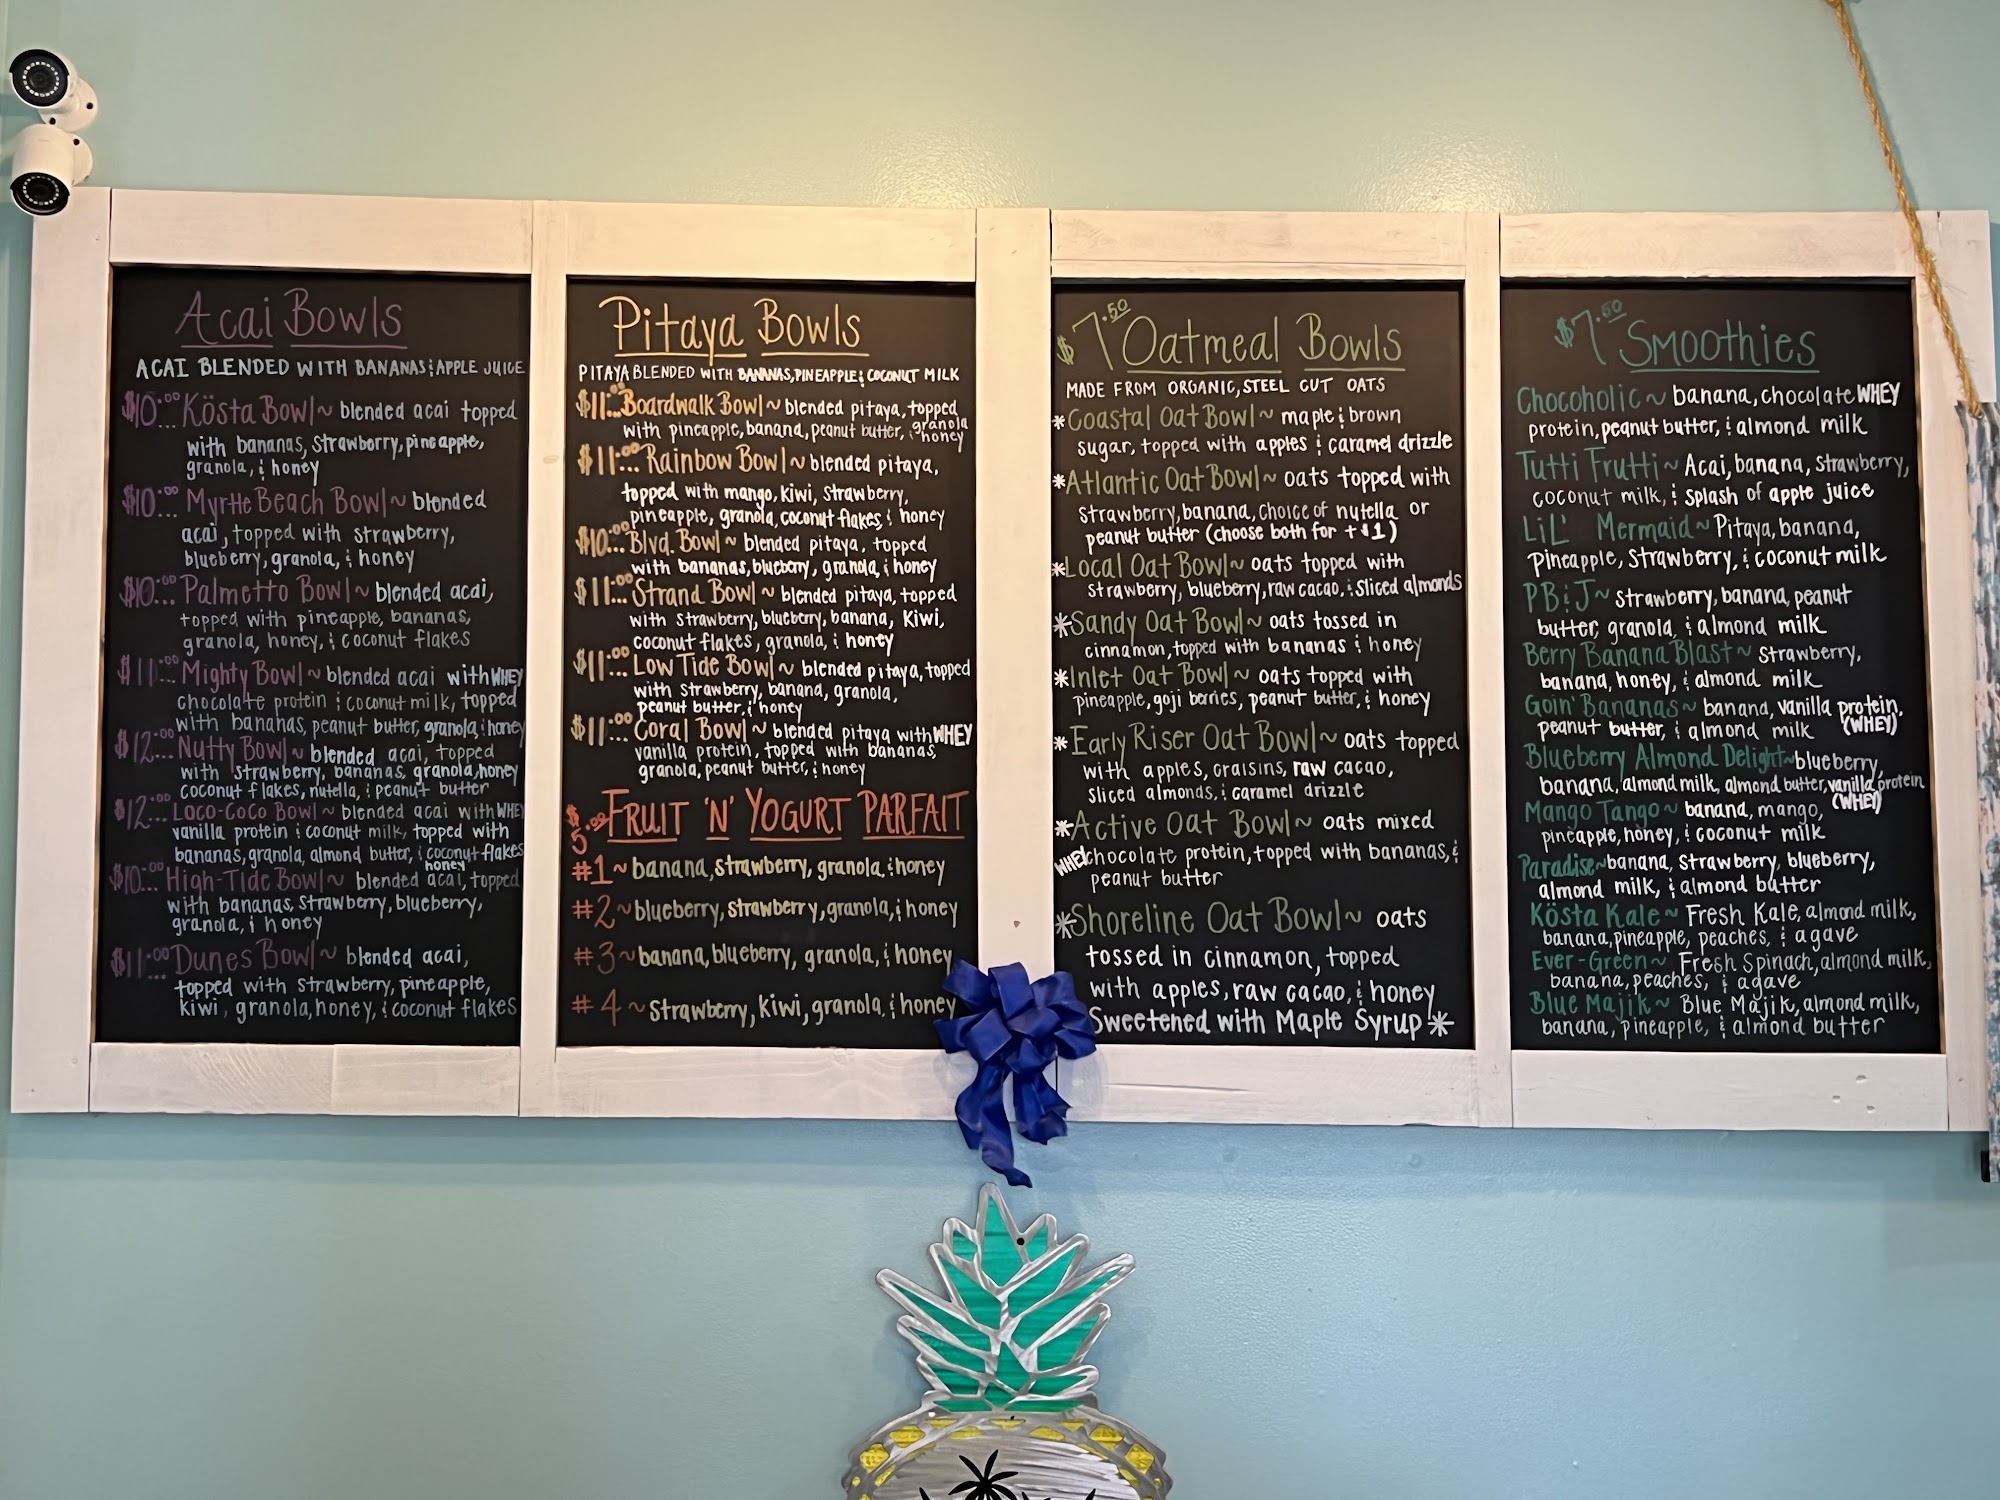 Acai Bowls
ACAI BLENDED WITH BANANAS & APPLE JUICE
$10.00... Kösta Bowl ~ blended acai topped
with bananas, strawberry, pineapple,
granola, & honey
$10.00... Myrtle Beach Bowl ~ blended
acai, topped with strawberry,
blueberry, granola, & honey
$10.00... Palmetto Bowl ~ blended acai,
topped with pineapple, bananas,
granola, honey, & coconut flakes
$11.00... Mighty Bowl ~ blended acai with WHEY
chocolate protein & coconut milk, topped
with bananas, peanut butter, granola & honey
$12.00... Nutty Bowl ~ blended acai, topped
with strawberry, bananas, granola, honey
coconut flakes, nutella, & peanut butter
$12.00... Loco-Coco Bowl ~ blended acai with WHEY
vanilla protein & coconut milk, topped with
bananas, granola, almond butter, & coconut flakes
honey
$10.00... High-Tide Bowl ~ blended acai, topped
with bananas, strawberry, blueberry,
granola, & honey
$11.00... Dunes Bowl ~ blended acai,
topped with strawberry, pineapple,
kiwi, granola, honey, & coconut flakes
Pitaya Bowls
PITAYA BLENDED WITH BANANAS, PINEAPPLE & COCONUT MILK
$11.00... Boardwalk Bowl ~ blended pitaya, topped
with pineapple, banana, peanut butter, & granola
honey
$11.00... Rainbow Bowl ~ blended pitaya,
topped with mango, kiwi, strawberry,
pineapple, granola, coconut flakes, & honey
$10.00... Blvd. Bowl ~ blended pitaya, topped
with bananas, blueberry, granola, & honey
$11.00... Strand Bowl ~ blended pitaya, topped
with strawberry, blueberry, banana, kiwi,
coconut flakes, granola, & honey
$11.00... Low Tide Bowl ~ blended pitaya, topped
with strawberry, banana, granola,
peanut butter, & honey
$11.00... Coral Bowl ~ blended pitaya with WHEY
vanilla protein, topped with bananas,
granola, peanut butter, & honey
$5.00 FRUIT 'N' YOGURT PARFAIT
#1 ~ banana, strawberry, granola, & honey
#2 ~ blueberry, strawberry, granola, & honey
#3 ~ banana, blueberry, granola, & honey
#4 ~ strawberry, kiwi, granola, & honey
$7.50 Oatmeal Bowls
MADE FROM ORGANIC, STEEL CUT OATS
*Coastal Oat Bowl ~ maple & brown
sugar, topped with apples & caramel drizzle
*Atlantic Oat Bowl ~ oats topped with
strawberry, banana, choice of nutella or
peanut butter (choose both for +$1)
*Local Oat Bowl ~ oats topped with
strawberry, blueberry, raw cacao, & sliced almonds
*Sandy Oat Bowl ~ oats tossed in
cinnamon, topped with bananas & honey
*Inlet Oat Bowl ~ oats topped with
pineapple, goji berries, peanut butter, & honey
*Early Riser Oat Bowl ~ oats topped
with apples, craisins, raw cacao,
sliced almonds, & caramel drizzle
*Active Oat Bowl ~ oats mixed
WHEY chocolate protein, topped with bananas, &
peanut butter
*Shoreline Oat Bowl ~ oats
tossed in cinnamon, topped
with apples, raw cacao, & honey
Sweetened with Maple Syrup! *
$7.50 Smoothies
Chocoholic ~ banana, chocolate WHEY
protein, peanut butter, & almond milk
Tutti Frutti ~ Acai, banana, strawberry,
coconut milk, & splash of apple juice
LiL' Mermaid ~ Pitaya, banana,
pineapple, strawberry, & coconut milk
PB&J ~ strawberry, banana, peanut
butter, granola, & almond milk
Berry Banana Blast ~ strawberry,
banana, honey, & almond milk
Goin' Bananas ~ banana, vanilla protein,
peanut butter, & almond milk (WHEY)
Blueberry Almond Delight ~ blueberry,
banana, almond milk, almond butter, vanilla protein
(WHEY)
Mango Tango ~ banana, mango,
pineapple, honey, & coconut milk
Paradise ~ banana, strawberry, blueberry,
almond milk, & almond butter
Kösta Kale ~ Fresh Kale, almond milk,
banana, pineapple, peaches, & agave
Ever-Green ~ Fresh Spinach, almond milk,
banana, peaches, & agave
Blue Majik ~ Blue Majik, almond milk,
banana, pineapple, & almond butter